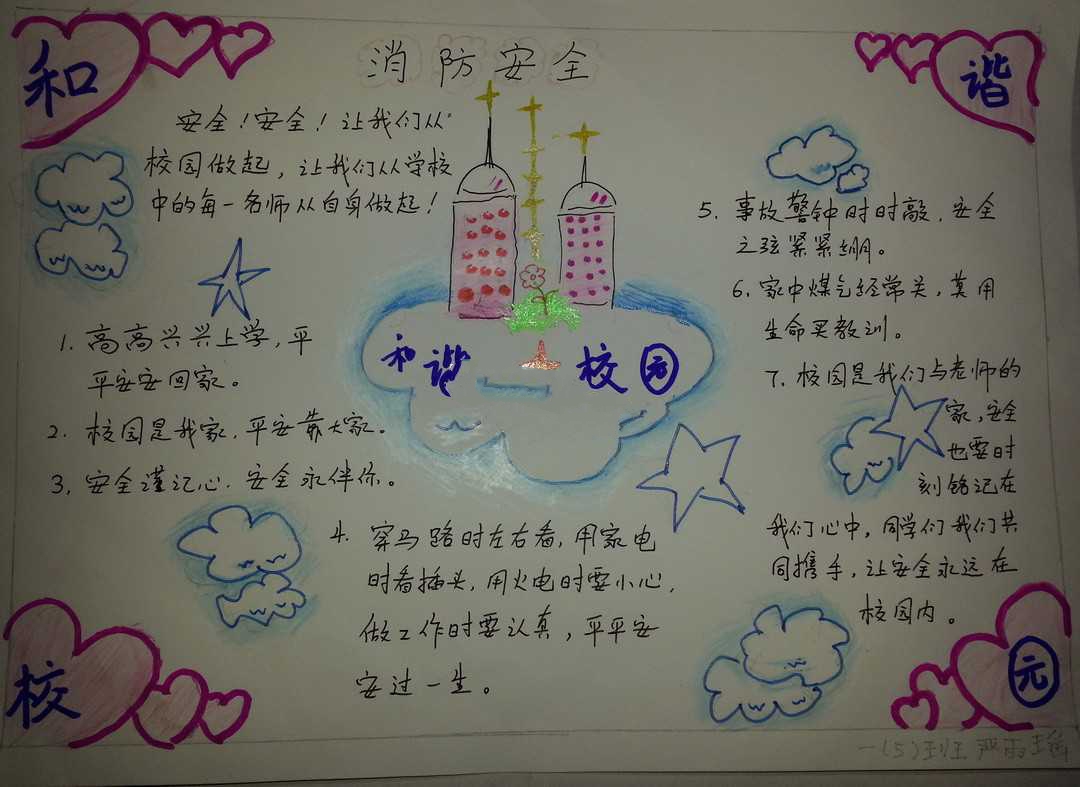 和
谐
消防安全
安全！安全！让我们从
校园做起，让我们从学校
中的每一名师从自身做起！
1. 高高兴兴上学，平
平安安回家。
2. 校园是我家，平安靠大家。
3. 安全谨记心．安全永伴你。
和谐 校园
4. 穿马路时左右看，用家电
时看插头，用火电时要小心，
做工作时要认真，平平安
安过一生。
5. 事故警钟时时敲，安全
之弦紧紧绷。
6. 家中煤气经常关，莫用
生命买教训。
7. 校园是我们与老师的
家，安全
也要时
刻铭记在
我们心中，同学们我们共
同携手，让安全永远在
校园内。
校
园
一(5)班 严雨瑶